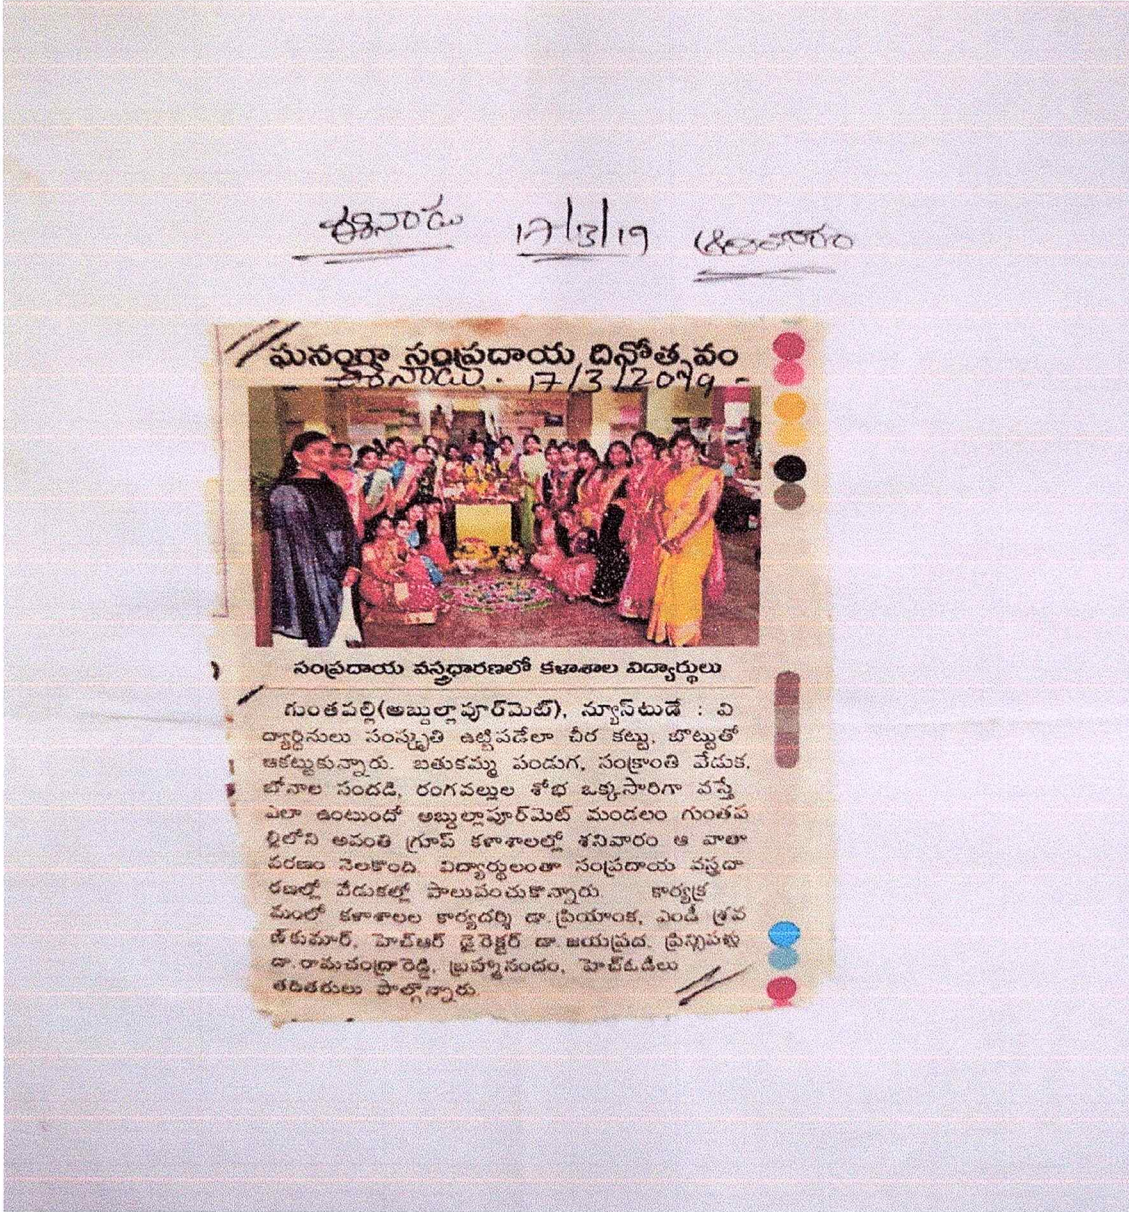 ఈనాడు 17/3/19 ఆదివారం
ఘనంగా సంప్రదాయ దినోత్సవం
ఈనాడు. 17/3/2019 -
సంప్రదాయ వస్త్రధారణలో కళాశాల విద్యార్థులు
గుంతపల్లి(అబ్దుల్లాపూర్‌మెట్), న్యూస్‌టుడే : వి
ద్యార్థినులు సంస్కృతి ఉట్టిపడేలా చీర కట్టు, బొట్టుతో
ఆకట్టుకున్నారు. బతుకమ్మ పండుగ, సంక్రాంతి వేడుక,
బోనాల సందడి, రంగవల్లుల శోభ ఒక్కసారిగా వస్తే
ఎలా ఉంటుందో అబ్దుల్లాపూర్‌మెట్ మండలం గుంతప
ల్లిలోని అవంతి గ్రూప్ కళాశాలల్లో శనివారం ఆ వాతా
వరణం నెలకొంది. విద్యార్థులంతా సంప్రదాయ వస్త్రధా
రణల్లో వేడుకల్లో పాలుపంచుకొన్నారు. కార్యక్ర
మంలో కళాశాలల కార్యదర్శి డా.ప్రియాంక, ఎండీ శ్రవ
ణ్‌కుమార్, హెచ్‌ఆర్ డైరెక్టర్ డా.జయప్రద, ప్రిన్సిపళ్లు
డా.రామచంద్రారెడ్డి, బ్రహ్మానందం, హెచ్‌ఓడీలు
తదితరులు పాల్గొన్నారు.